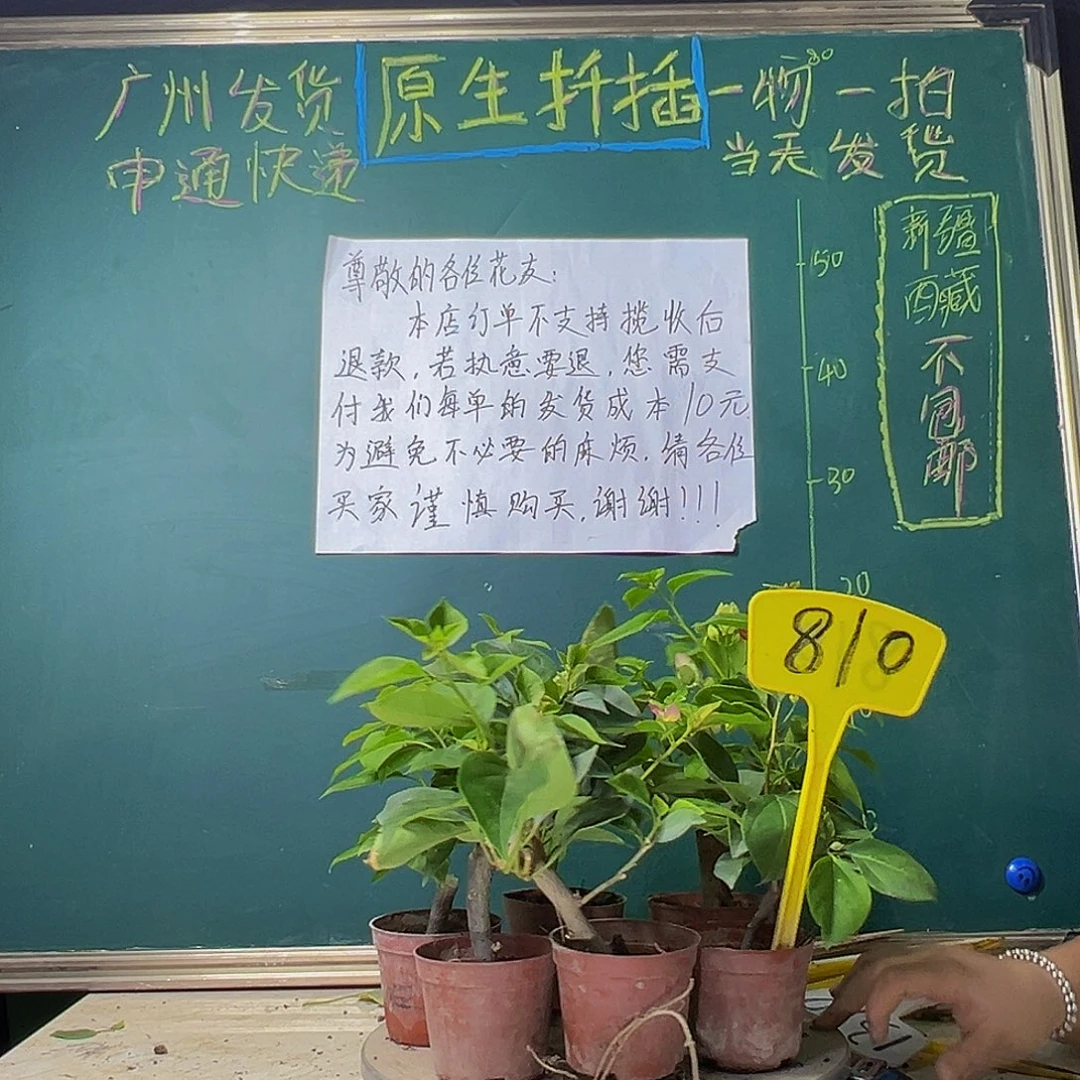 广州发货
申通快递
原生扦插
一物一拍
当天发货
尊敬的各位花友:
本店订单不支持揽收后
退款,若执意要退,您需支
付我们每单的发货成本10元
为避免不必要的麻烦.请各位
买家谨慎购买,谢谢!!!
50
40
30
20
新疆
西藏
不
包
邮
810